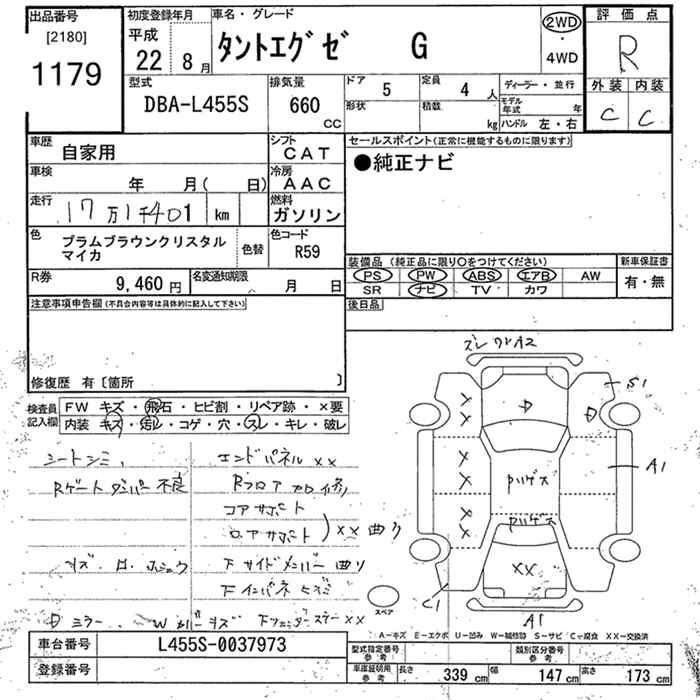 出品番号
[2180]
1179
初度登録年月
平成
22 8月
車名・グレード
タントエグゼ G
2WD
・
4WD
評価点
R
外装 内装
C C
型式
DBA-L455S
排気量
660
CC
ドア 5
定員 4 人
形状
積数
kg
ディーラー・並行
モデル年式 年
ハンドル 左・右
車歴 自家用
シフト CAT
車検 年 月( 日)
冷房 AAC
走行 17万1千401 km
燃料 ガソリン
色 プラムブラウンクリスタル
マイカ
色替
色コード
R59
R券 9,460円
名変通知期限 月 日
注意事項申告欄(不具合内容等は具体的に記入して下さい)
修復歴 有〔箇所 〕
セールスポイント(正常に機能するものに限ります)
●純正ナビ
装備品 (純正品に限り○をつけてください)
PS PW ABS エアB AW
SR ナビ TV カワ
新車保証書
有・無
後日品
検査員
記入欄
FW キズ・飛石・ヒビ割・リペア跡・×要
内装 キズ・汚レ・コゲ・穴・スレ・キレ・破レ
シートシミ、
Rゲートダンパー不良
エンドパネル ××
Rフロア
コアサポート
ロアサポート
×× 曲り
下サイドメンバー 曲り
Dミラー
A2
S1
D
A1
××
××
××
××
C1
A1
スペア
A-キズ E-エクボ U-凹み W-補修跡 S-サビ C-腐食 XX-交換済
車台番号 L455S-0037973
登録番号
型式指定番号
参考
類別区分番号
参考
車庫証明用
参考
長さ 339 cm
幅 147 cm
高さ 173 cm